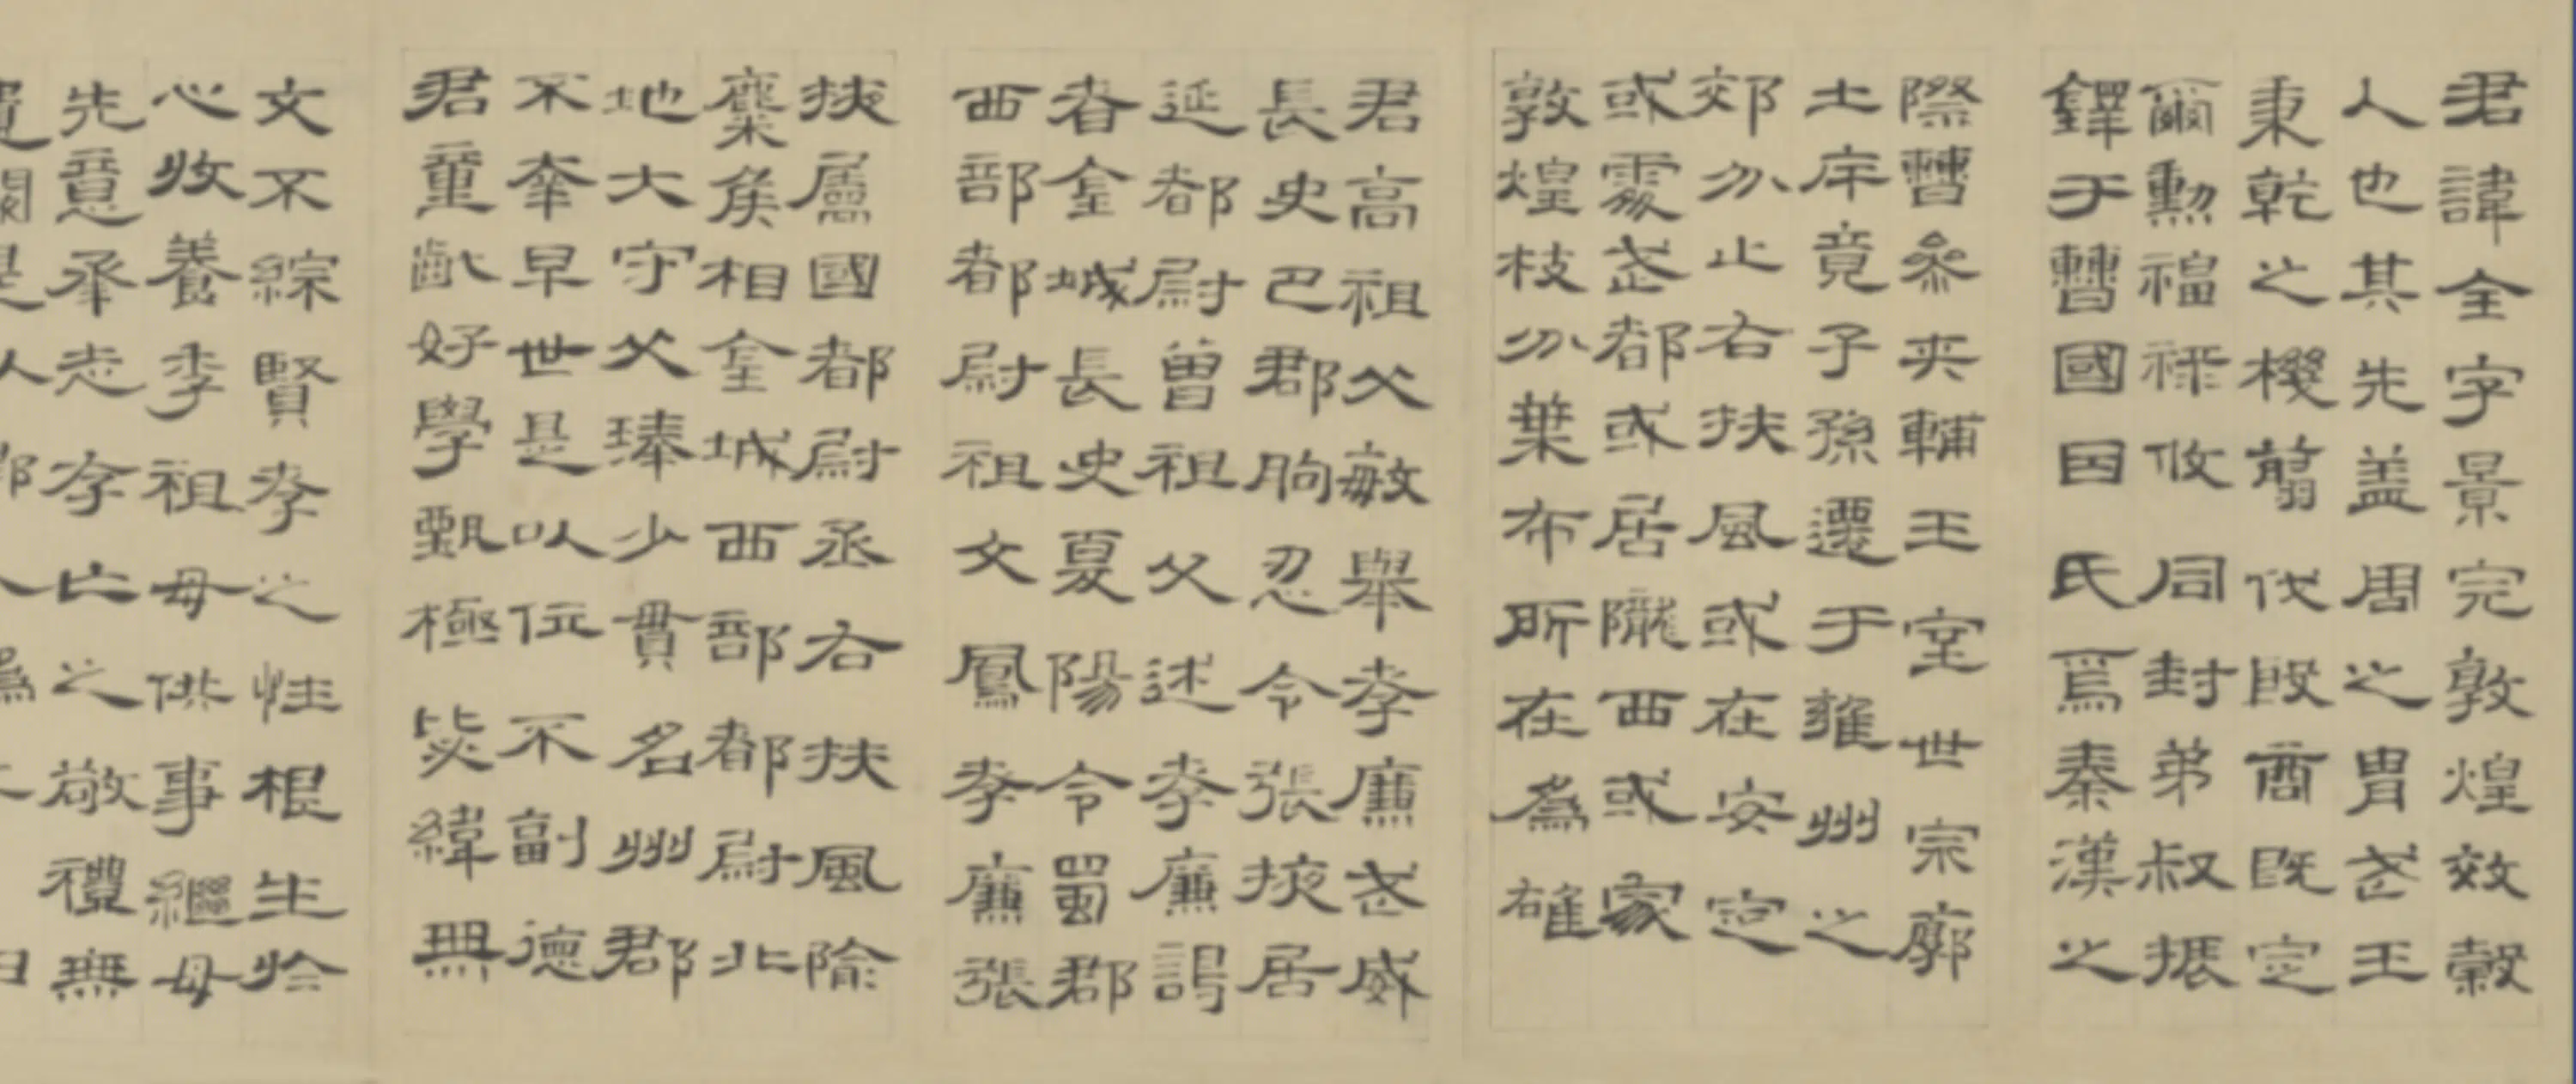 君諱全字景完敦煌效穀
人也其先盖周之胄武王
秉乾之機翦伐殷商既定
爾勳福祿攸同封弟叔振
鐸于曹國因氏焉秦漢之
際曹參夾輔王室世宗廓
土斥竟子孫遷于雍州之
郊分止右扶風或在安定
或處武都或居隴西或家
敦煌枝分葉布所在為雄
君高祖父敏舉孝廉武威
長史巴郡朐忍令張掖居
延都尉曾祖父述孝廉謁
者金城長史夏陽令蜀郡
西部都尉祖父鳳孝廉張
掖屬國都尉丞右扶風隃
麋侯相金城西部都尉北
地大守父琫少貫名州郡
不幸早世是以位不副德
君童齔好學甄極毖緯無
文不綜賢孝之性根生於
心收養季祖母供事繼母
先意承志存亡之敬禮無
遺闕是